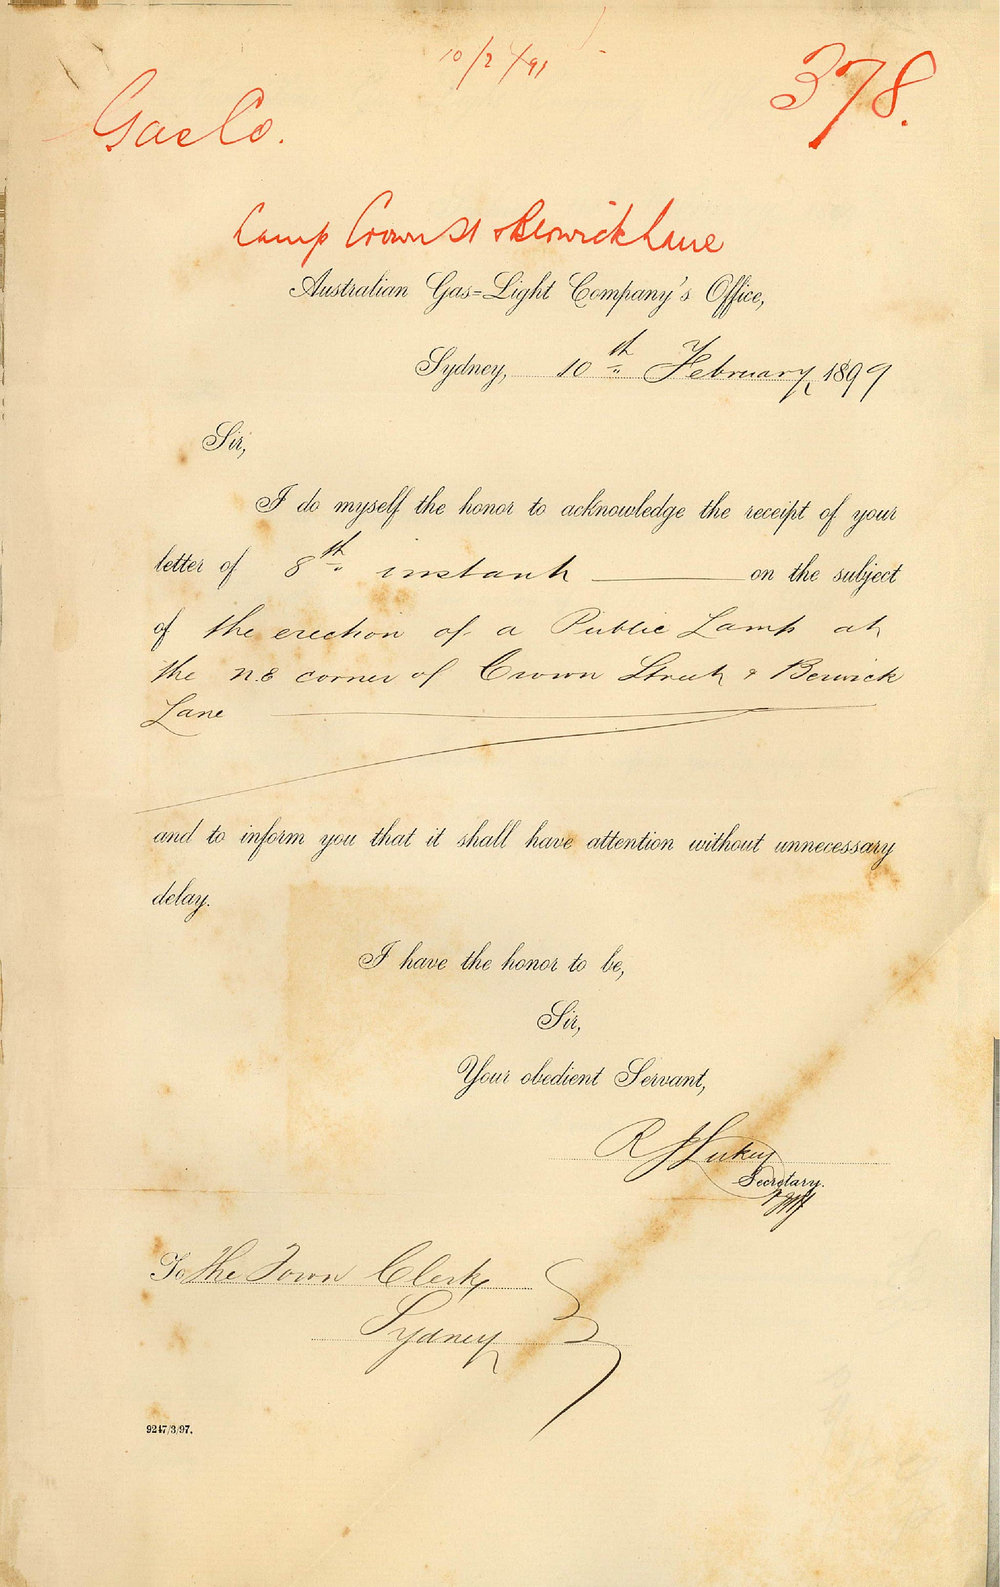 10/2/99
378.
Gas Co.
Lamp Crown St & Berwick Lane
Australian Gas=Light Company's Office,
Sydney, 10th February, 1899
Sir,
I do myself the honor to acknowledge the receipt of your
letter of 8th instant on the subject
of the erection of a Public Lamp at
the N.E corner of Crown Street & Berwick
Lane
and to inform you that it shall have attention without unnecessary
delay.
I have the honor to be,
Sir,
Your obedient Servant,
R J Lukey
Secretary.
To The Town Clerk,
Sydney
9247/3/97.